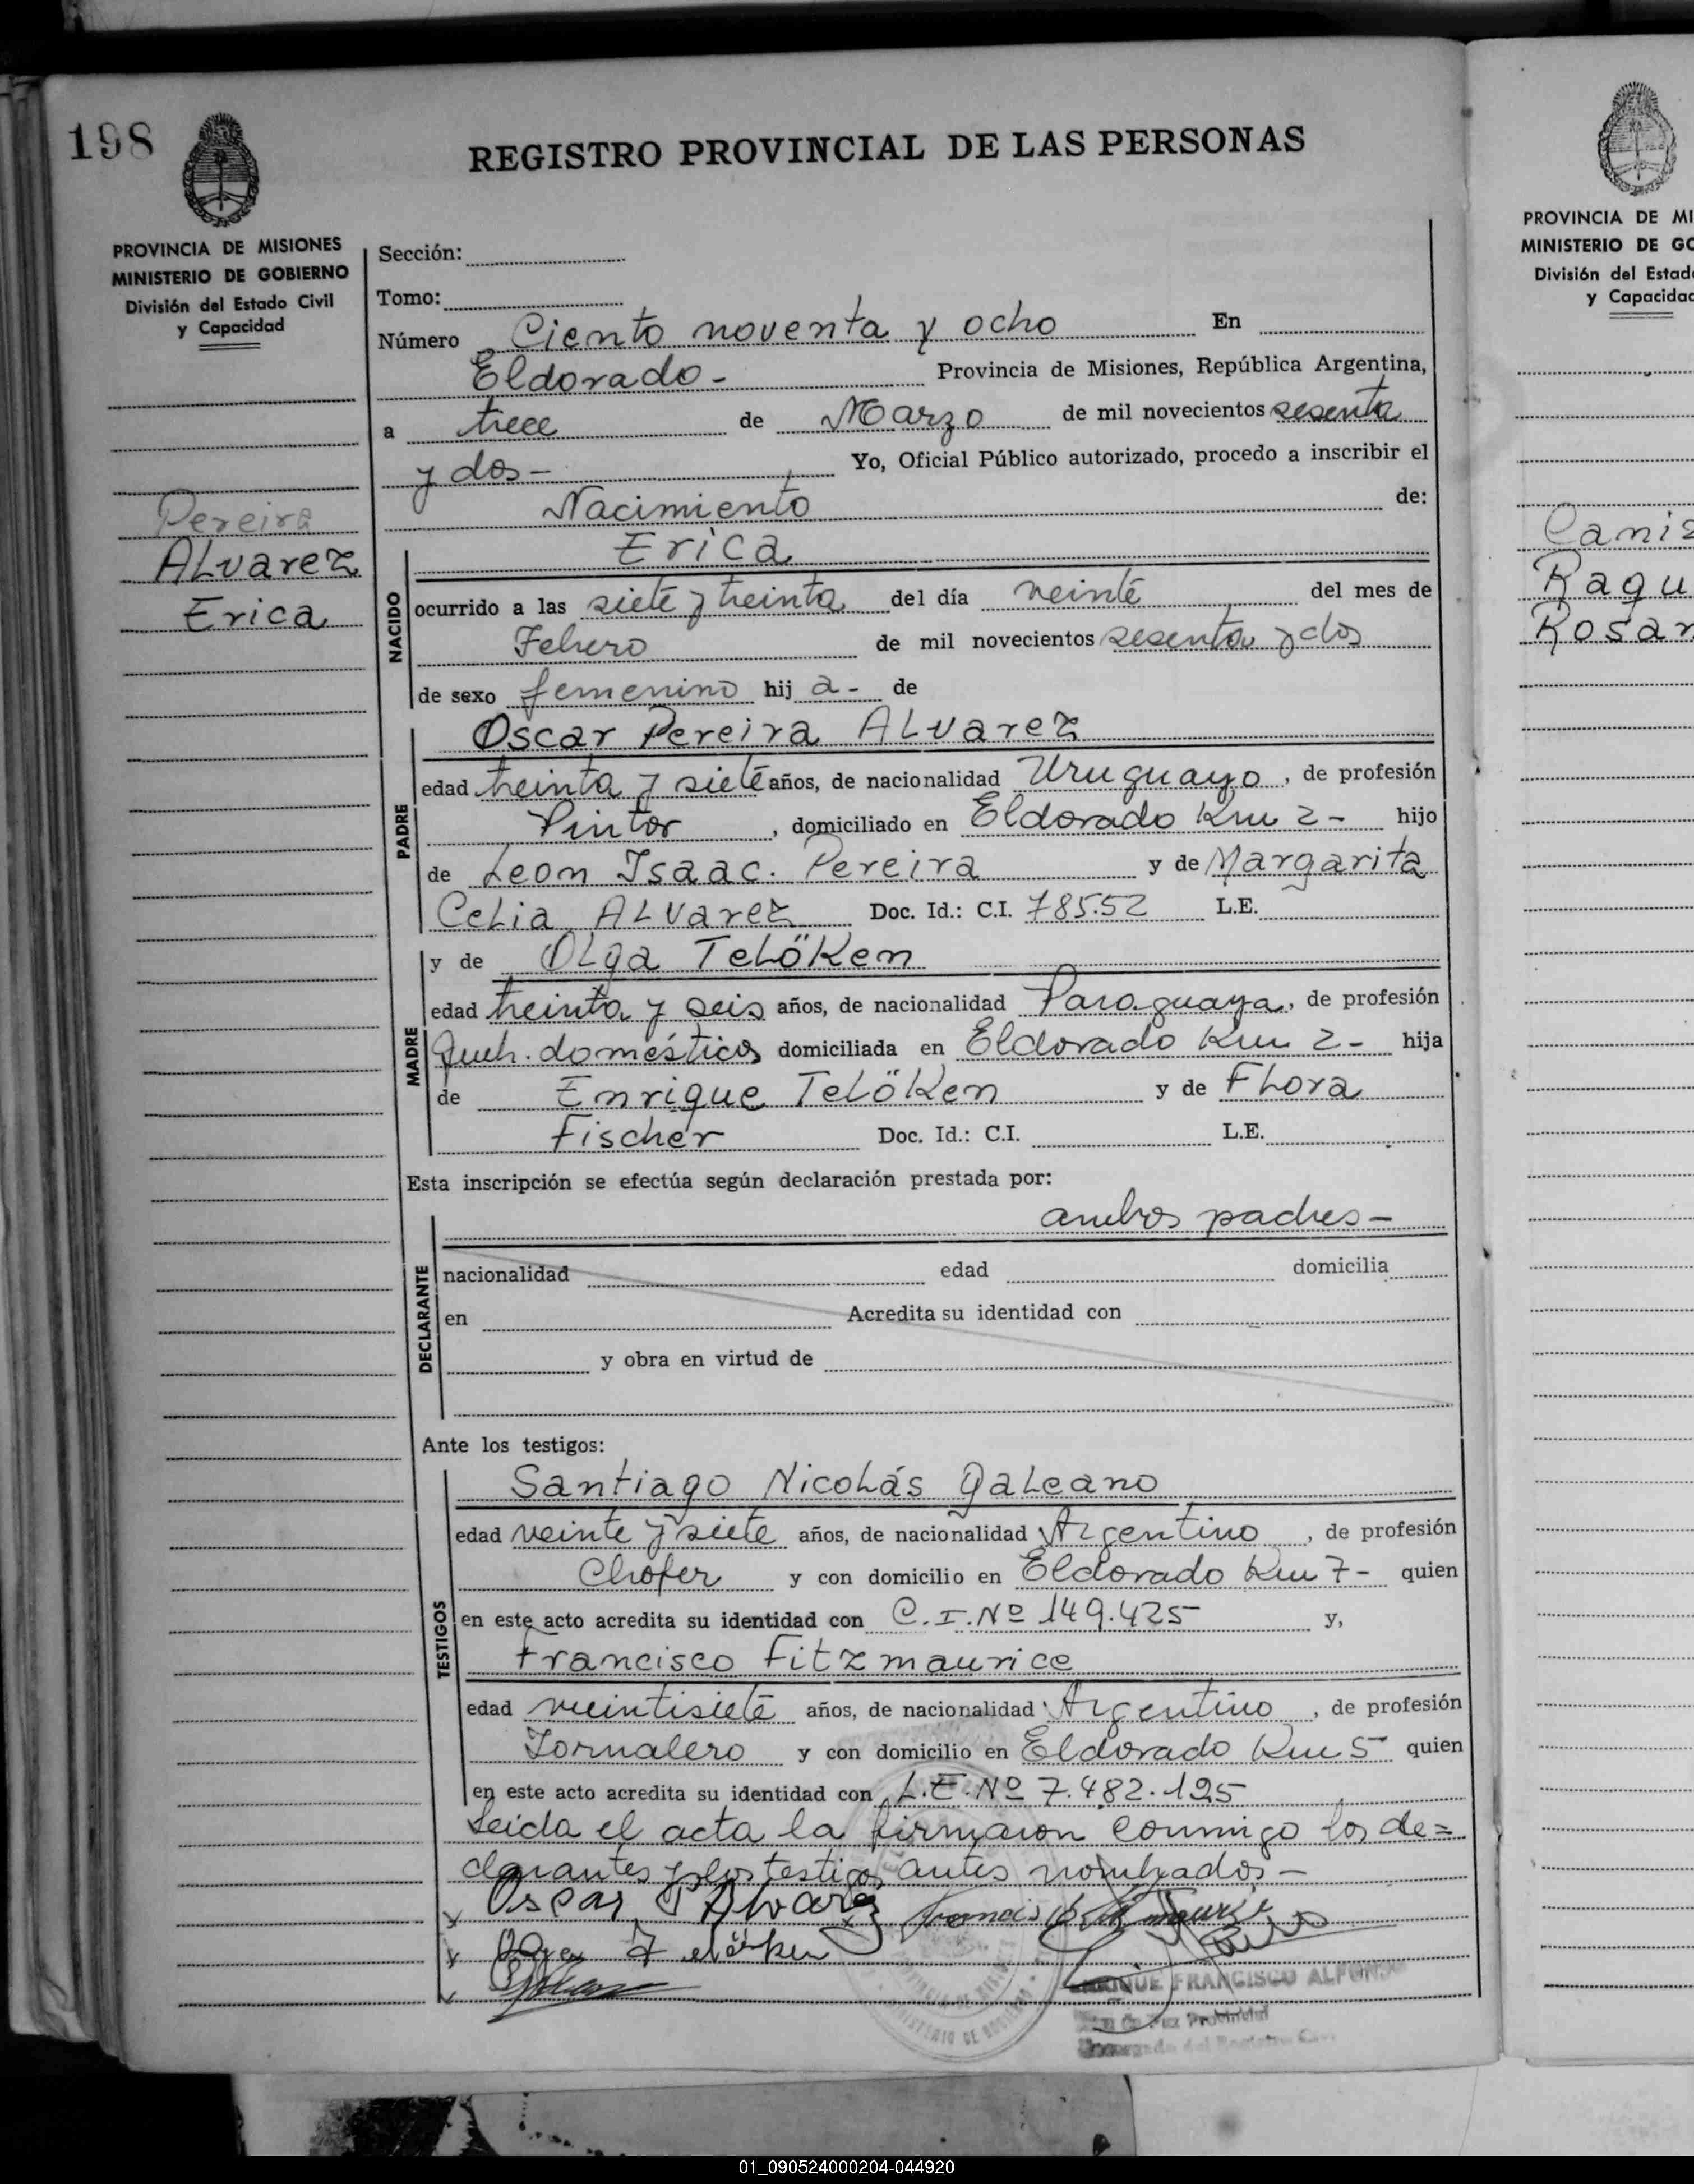 198
REGISTRO PROVINCIAL DE LAS PERSONAS
PROVINCIA DE MISIONES
MINISTERIO DE GOBIERNO
División del Estado Civil
y Capacidad
Pereira
ALvarez
Erica
Sección:
Tomo:
Número Ciento noventa y ocho En
Eldorado - Provincia de Misiones, República Argentina,
a trece de Marzo de mil novecientos sesenta
y dos - Yo, Oficial Público autorizado, procedo a inscribir el
Nacimiento de:
NACIDO
Erica
ocurrido a las siete y treinta del día veinte del mes de
Febrero de mil novecientos sesenta y dos
de sexo femenino hij a - de
PADRE
Oscar Pereira ALvarez
edad treinta y siete años, de nacionalidad Uruguayo, de profesión
Pintor, domiciliado en Eldorado Km 2 - hijo
de Leon Isaac. Pereira y de Margarita
CeLia ALvarez Doc. Id.: C.I. 785.52 L.E.
MADRE
y de OLga TeLöKen
edad treinta y seis años, de nacionalidad Paraguaya, de profesión
Queh. domésticos domiciliada en Eldorado Km 2 - hija
de Enrique TeLöKen y de FLora
Fischer Doc. Id.: C.I. L.E.
Esta inscripción se efectúa según declaración prestada por:
DECLARANTE
ambos padres -
nacionalidad edad domicilia
en Acredita su identidad con
y obra en virtud de
Ante los testigos:
TESTIGOS
Santiago NicoLás GaLeano
edad veinte y siete años, de nacionalidad Argentino, de profesión
Chofer y con domicilio en Eldorado Km 7 - quien
en este acto acredita su identidad con C.I. Nº 149.425 y,
Francisco Fitzmaurice
edad veintisiete años, de nacionalidad Argentino, de profesión
Jornalero y con domicilio en Eldorado Km 5 quien
en este acto acredita su identidad con L.E. Nº 7.482.195
Leida el acta la firmaron conmigo los de=
clarantes y los testigos antes nombrados -
Oscar P Alvarez
Olga Telöken
FRANCISCO
PROVINCIA DE MI
MINISTERIO DE GO
División del Estado
y Capacidad
Raqu
Rosar
01_090524000204-044920